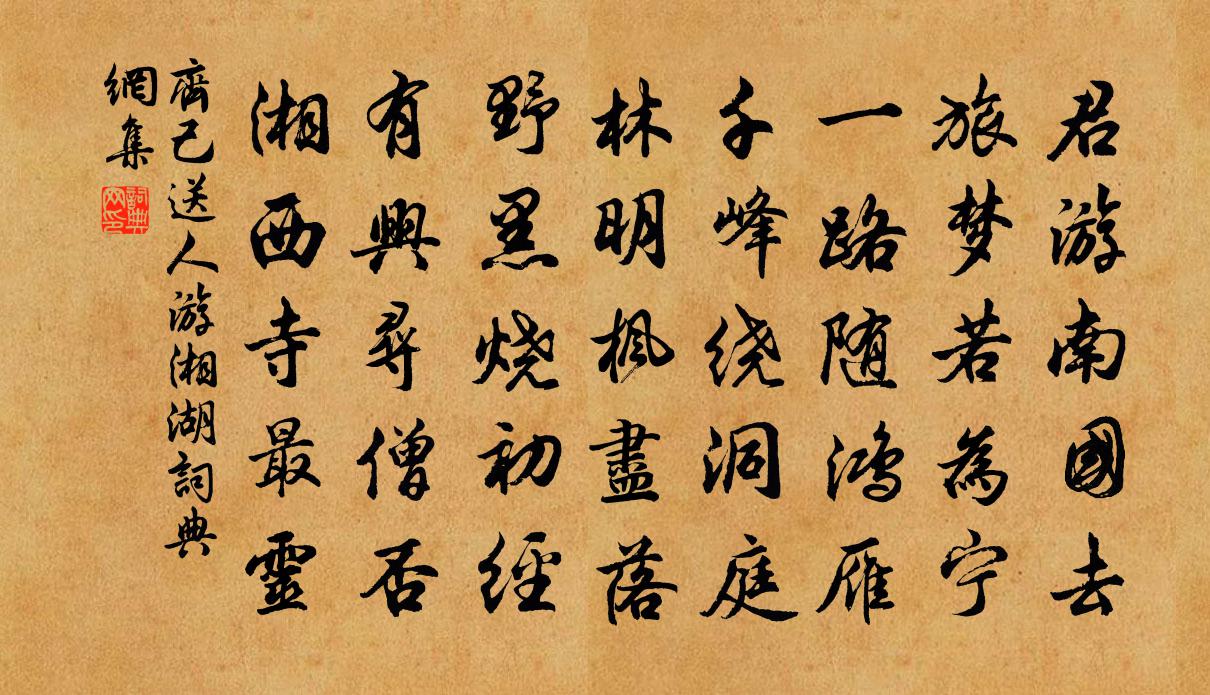 君游南國去
旅梦若為宁
一路随鸿雁
千峰绕洞庭
林明枫盡落
野黑烧初經
有興尋僧否
湘西寺最靈
齊己送人游湘湖詞典
網集
詞典
网印